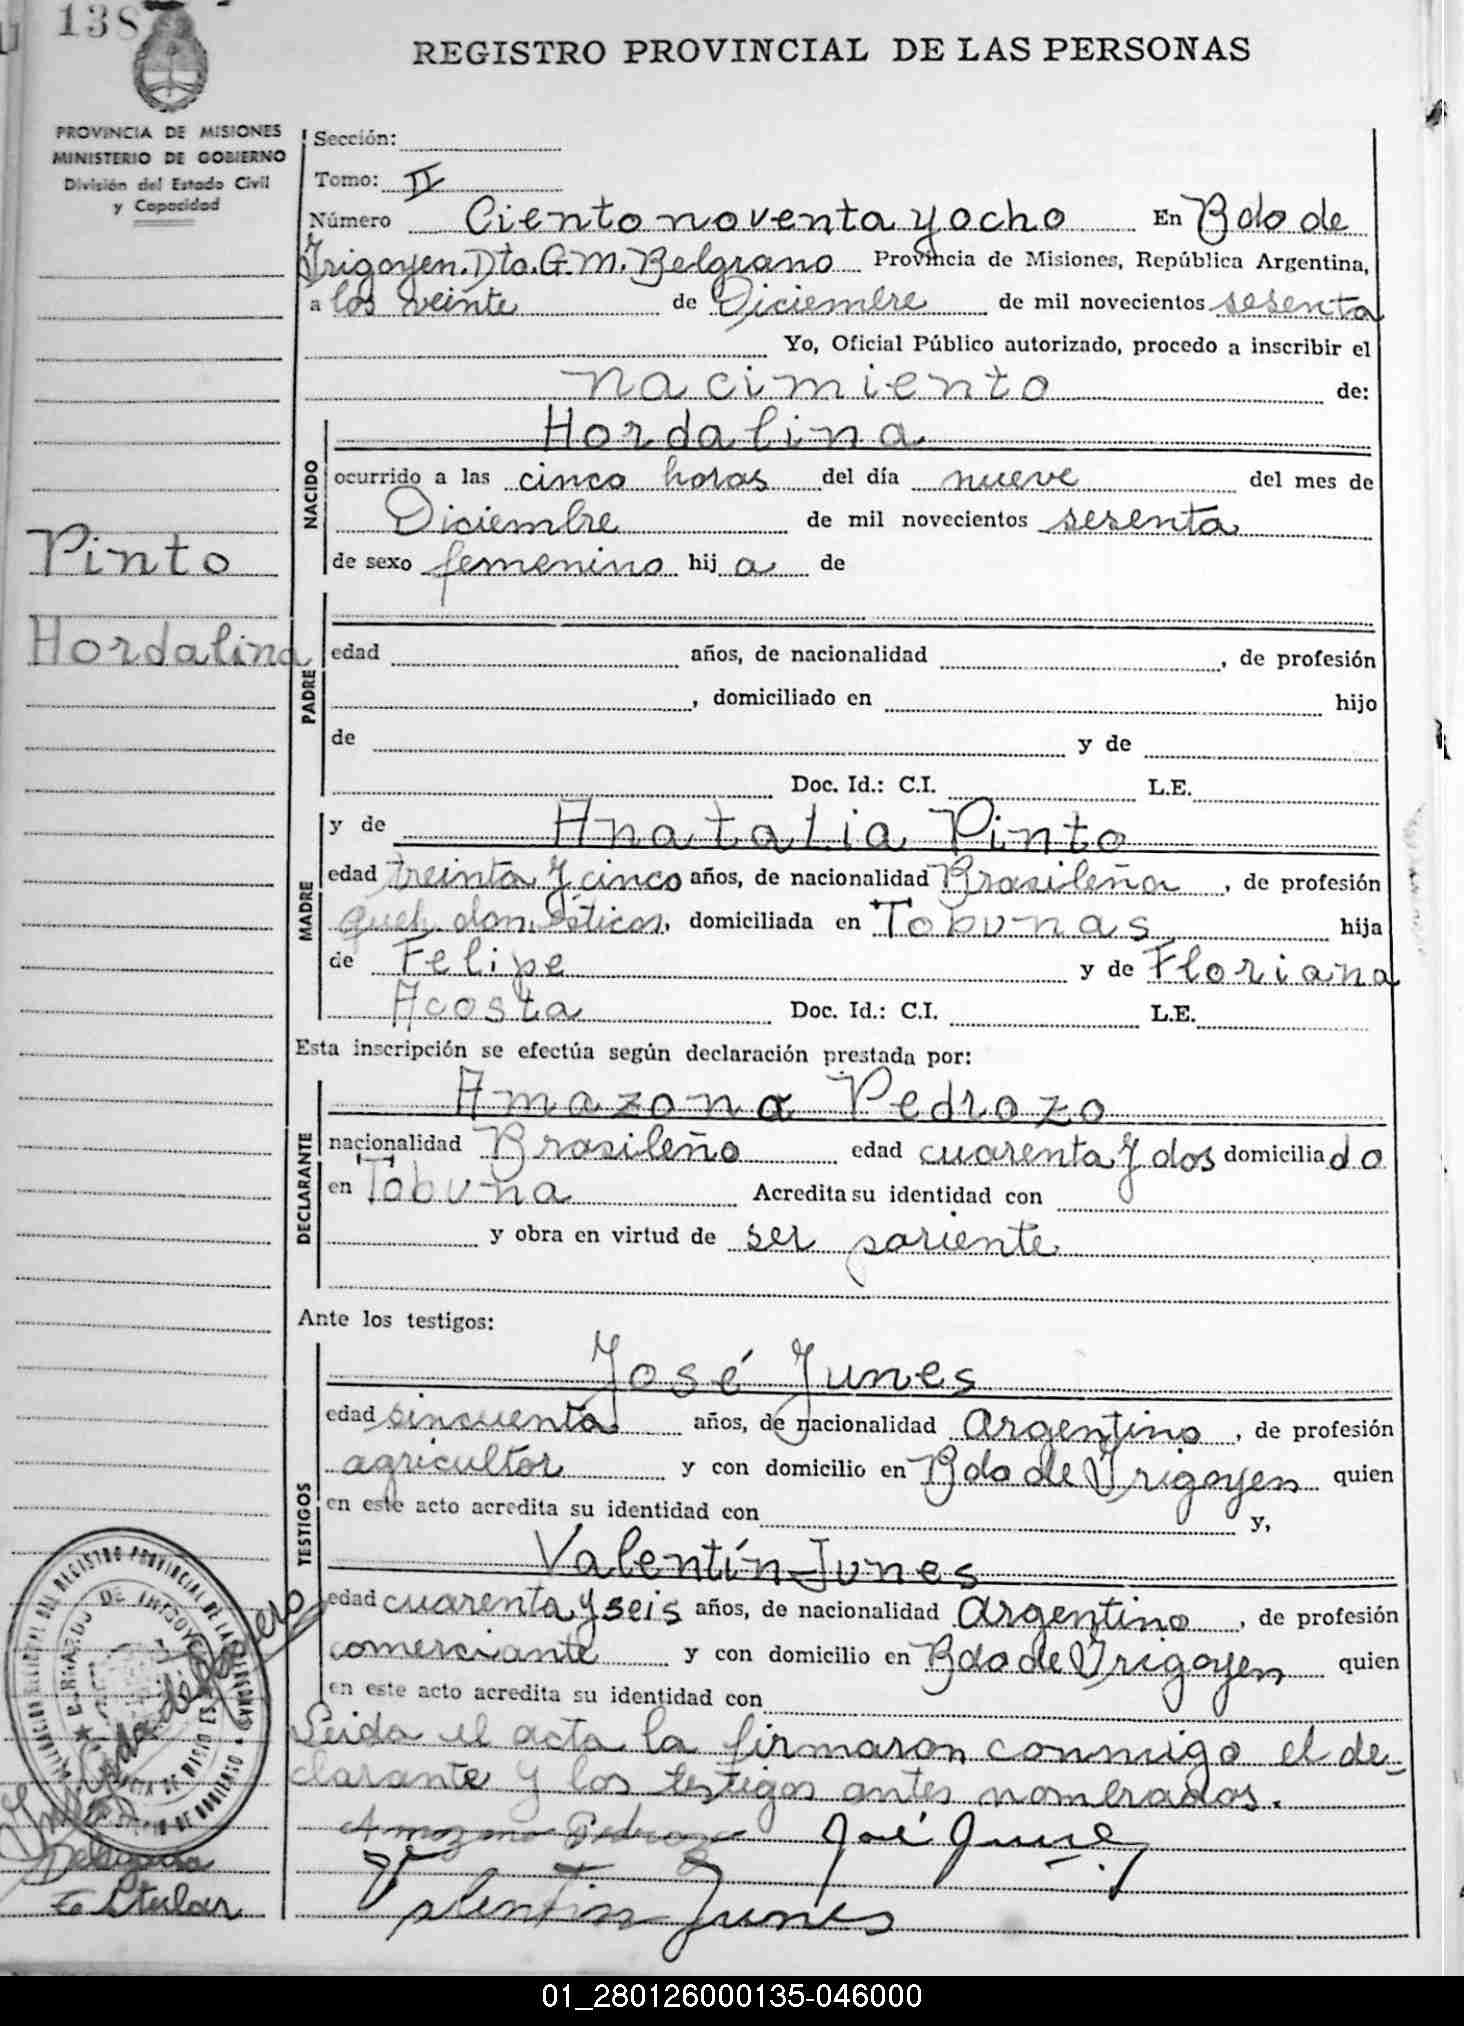 138
REGISTRO PROVINCIAL DE LAS PERSONAS
PROVINCIA DE MISIONES
MINISTERIO DE GOBIERNO
División del Estado Civil
y Capacidad
Sección:
Tomo: II
Número Ciento noventa y ocho En Bdo de
Irigoyen. Dto. G. M. Belgrano Provincia de Misiones, República Argentina,
a los veinte de Diciembre de mil novecientos sesenta
Yo, Oficial Público autorizado, procedo a inscribir el
nacimiento de:
Hordalina
NACIDO
ocurrido a las cinco horas del día nueve del mes de
Diciembre de mil novecientos sesenta
de sexo femenino hij a de
Pinto
Hordalina
PADRE
edad años, de nacionalidad , de profesión
, domiciliado en hijo
de y de
Doc. Id.: C.I. L.E.
MADRE
y de Anatalia Pinto
edad treinta y cinco años, de nacionalidad Brasileña , de profesión
queh. domésticos, domiciliada en Tobunas hija
de Felipe y de Floriana
Acosta Doc. Id.: C.I. L.E.
Esta inscripción se efectúa según declaración prestada por:
DECLARANTE
Amazona Pedrozo
nacionalidad Brasileño edad cuarenta y dos domicilia do
en Tobuna Acredita su identidad con
y obra en virtud de ser pariente
Ante los testigos:
TESTIGOS
José Junes
edad sincuenta años, de nacionalidad Argentino , de profesión
agricultor y con domicilio en Bdo de Irigoyen quien
en este acto acredita su identidad con y,
Valentín Junes
edad cuarenta y seis años, de nacionalidad Argentino , de profesión
comerciante y con domicilio en Bdo de Irigoyen quien
en este acto acredita su identidad con
Leida el acta la firmaron conmigo el de-
clarante y los testigos antes nombrados.
Amazona Pedrozo José Junes
Valentin Junes
DEL REGISTRO PROVINCIAL DE LAS PERSONAS
BERNARDO DE IRIGOYEN
Delegada
Titular
01_280126000135-046000